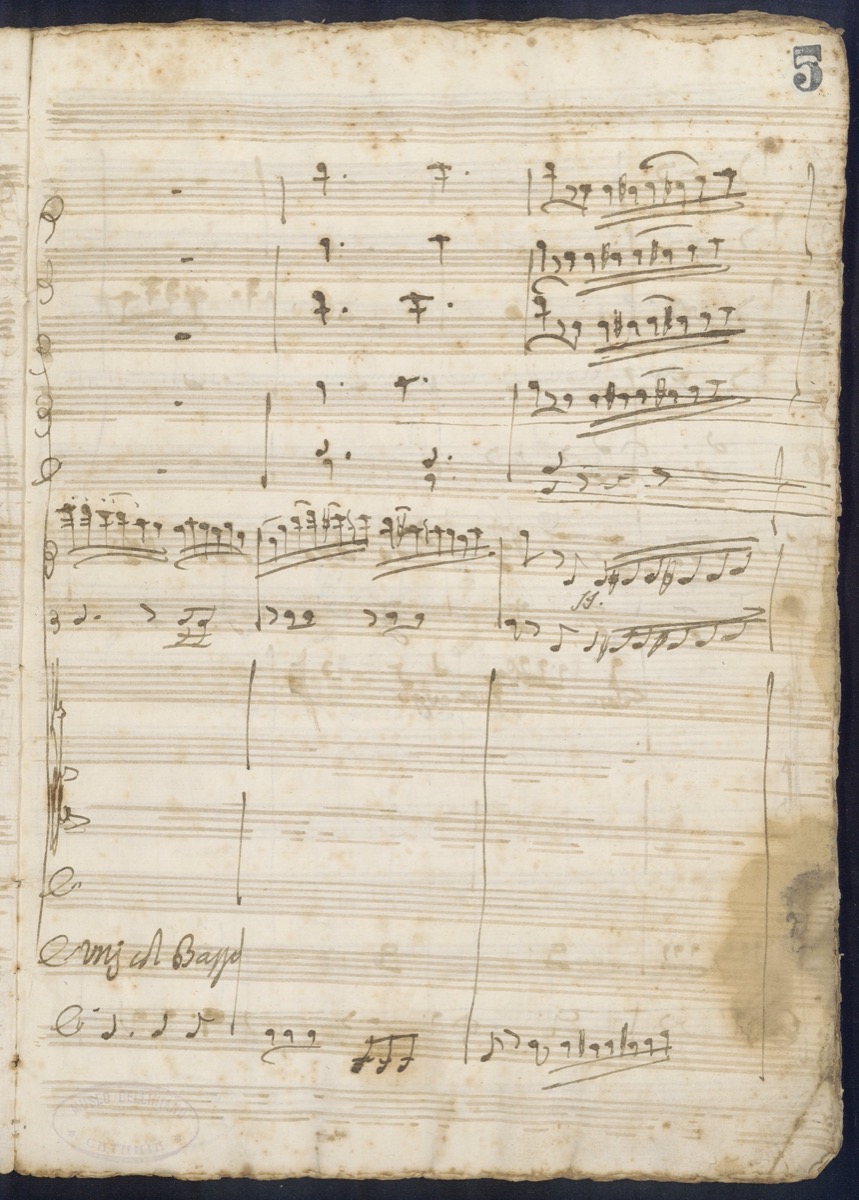 5
ff.
Unis col Basso
MUSEO BELLINIANO
CATANIA